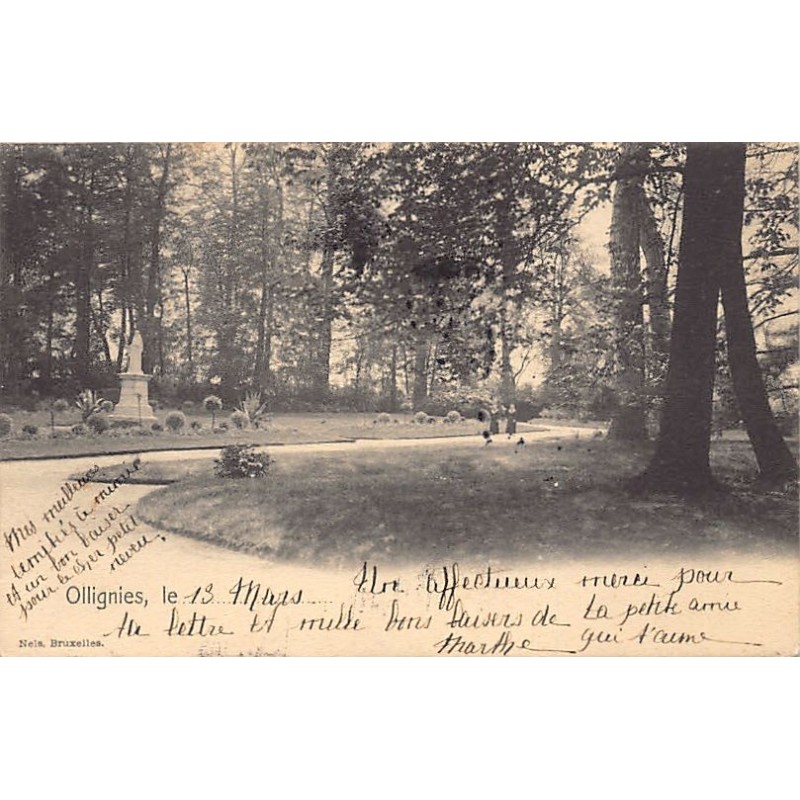 Mes meilleurs
et un bon baiser
pour le cher petit
neveu.
Ollignies, le 13 Mars
Un affectueux merci pour
ta lettre et mille bons baisers de La petite amie
Marthe qui t'aime
Nels, Bruxelles.